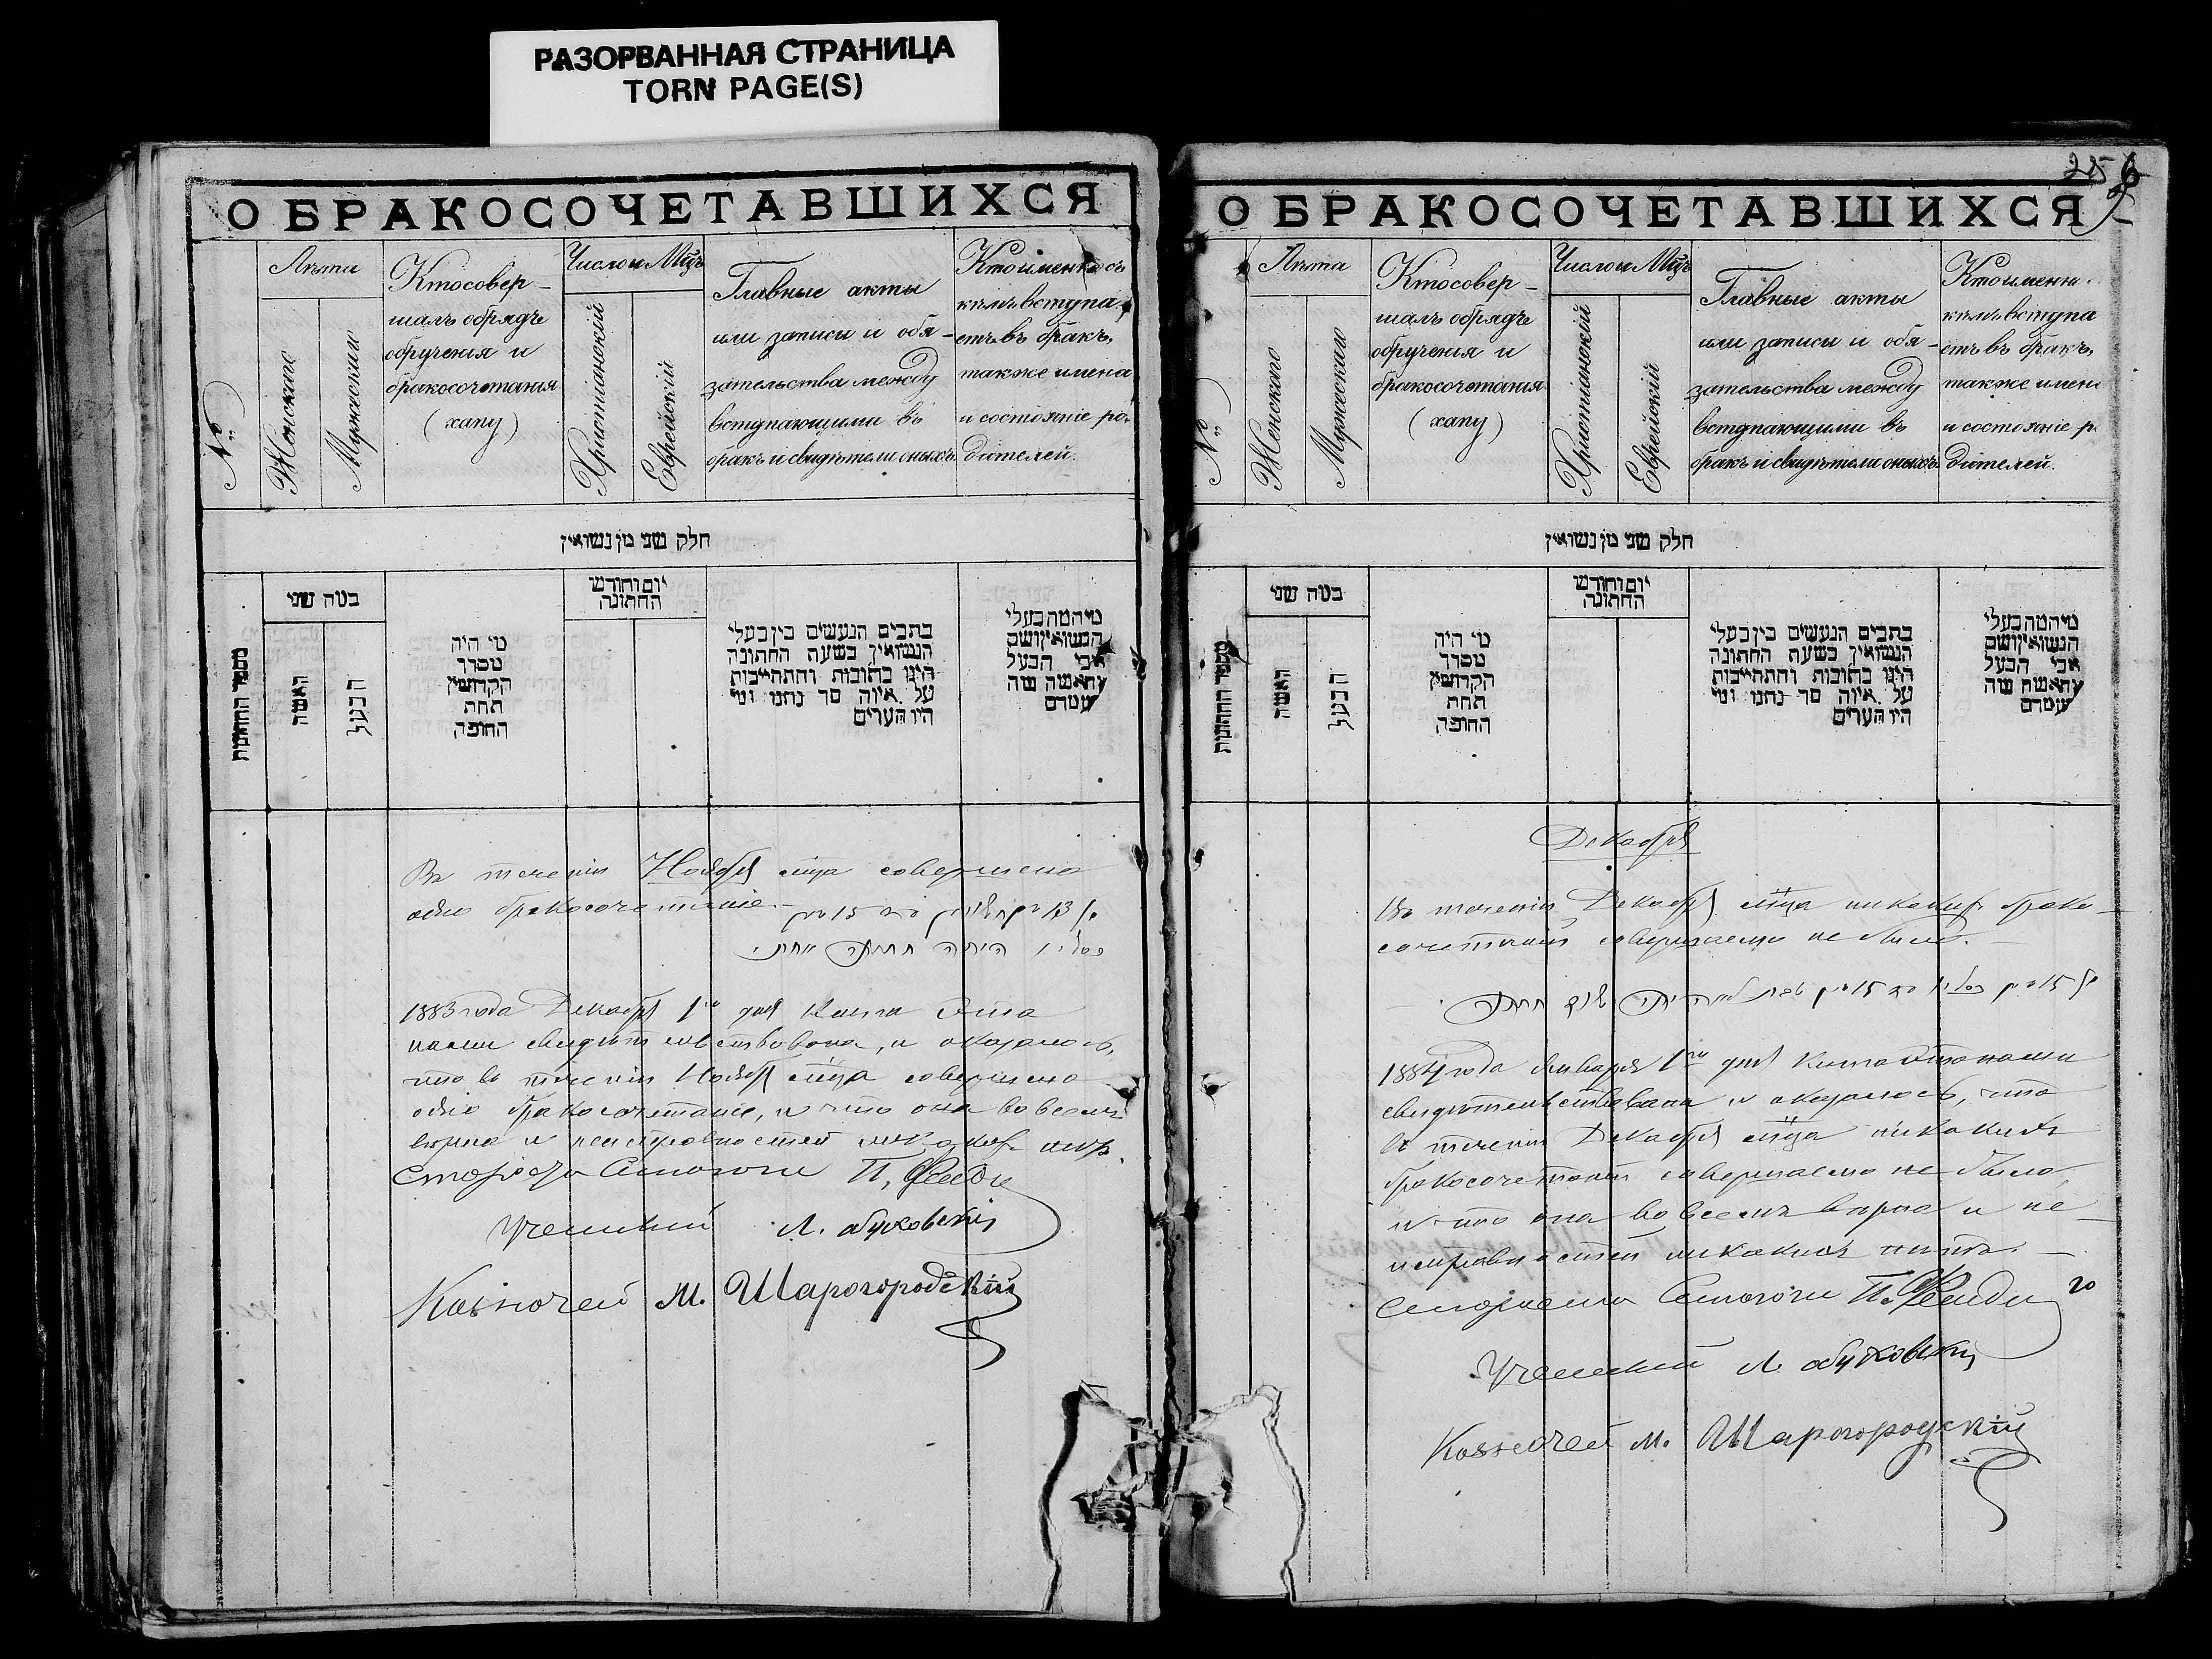 РАЗОРВАННАЯ СТРАНИЦА
TORN PAGE(S)
О БРАКОСОЧЕТАВШИХСЯ
№
Лѣта
Женскаго
Мужескаго
Кто совер-
шалъ обрядъ
обрученія и
бракосочетанія
(хапу)
Число и Мцъ
Христіанскій
Еврейскій
Главные акты
или записи и обя-
зательства между
вступающими въ
бракъ и свидѣтели оныхъ.
Кто именно съ
кѣмъ вступа
етъ въ бракъ,
также имена
и состояніе ро-
дителей.
חלק שני מן נשואין
מספר החתונות
כמה שני
האשה
הבעל
מי היה
מסדר
הקדושין
תחת
החופה
יום וחודש
החתונה
כתבים הנעשים בין בעלי
הנשואין בשעת החתונה
היינו כתובות והתחייבות
על איזה סך נתנו ומי
היו הערים
מי המה בעלי
הנשואין ושם
אבי הבעל
והאשה מה
מעמדם
Въ теченіи Ноября мѣца совершено
одно бракосочетаніе.
1883 года Декабря 1го дня Книга Эта
нами свидѣтельствована, и оказалось,
что въ теченіи Ноября мѣца совершено
одно бракосочетаніе, и что она во всемъ
вѣрна и неисправностей никакихъ нѣтъ.
Староста Синагоги П.
Ученный Л.
Казначей М. Шарогородскій
256
О БРАКОСОЧЕТАВШИХСЯ
№
Лѣта
Женскаго
Мужескаго
Кто совер-
шалъ обрядъ
обрученія и
бракосочетанія
(хапу)
Число и Мцъ
Христіанскій
Еврейскій
Главные акты
или записи и обя-
зательства между
вступающими въ
бракъ и свидѣтели оныхъ.
Кто именн
кѣмъ вступа
етъ въ бракъ,
также имен
и состояніе р
дителей.
חלק שני מן נשואין
מספר החתונות
כמה שני
האשה
הבעל
מי היה
מסדר
הקדושין
תחת
החופה
יום וחודש
החתונה
כתבים הנעשים בין בעלי
הנשואין בשעת החתונה
היינו כתובות והתחייבות
על איזה סך נתנו ומי
היו הערים
מי המה בעלי
הנשואין ושם
אבי הבעל
והאשה מה
מעמדם
Декабря
Въ теченіи Декабря мѣца никакихъ брако-
сочетаній совершаемо не было.
1884 года Января 1го дня Книга Эта нами
свидѣтельствована и оказалось, что
въ теченіи Декабря мѣца никакихъ
бракосочетаній совершаемо не было,
и что она во всемъ вѣрна и не-
исправностей никакихъ нѣтъ.
Синагоги П.
Ученный Л.
Казначей М. Шарогородскій